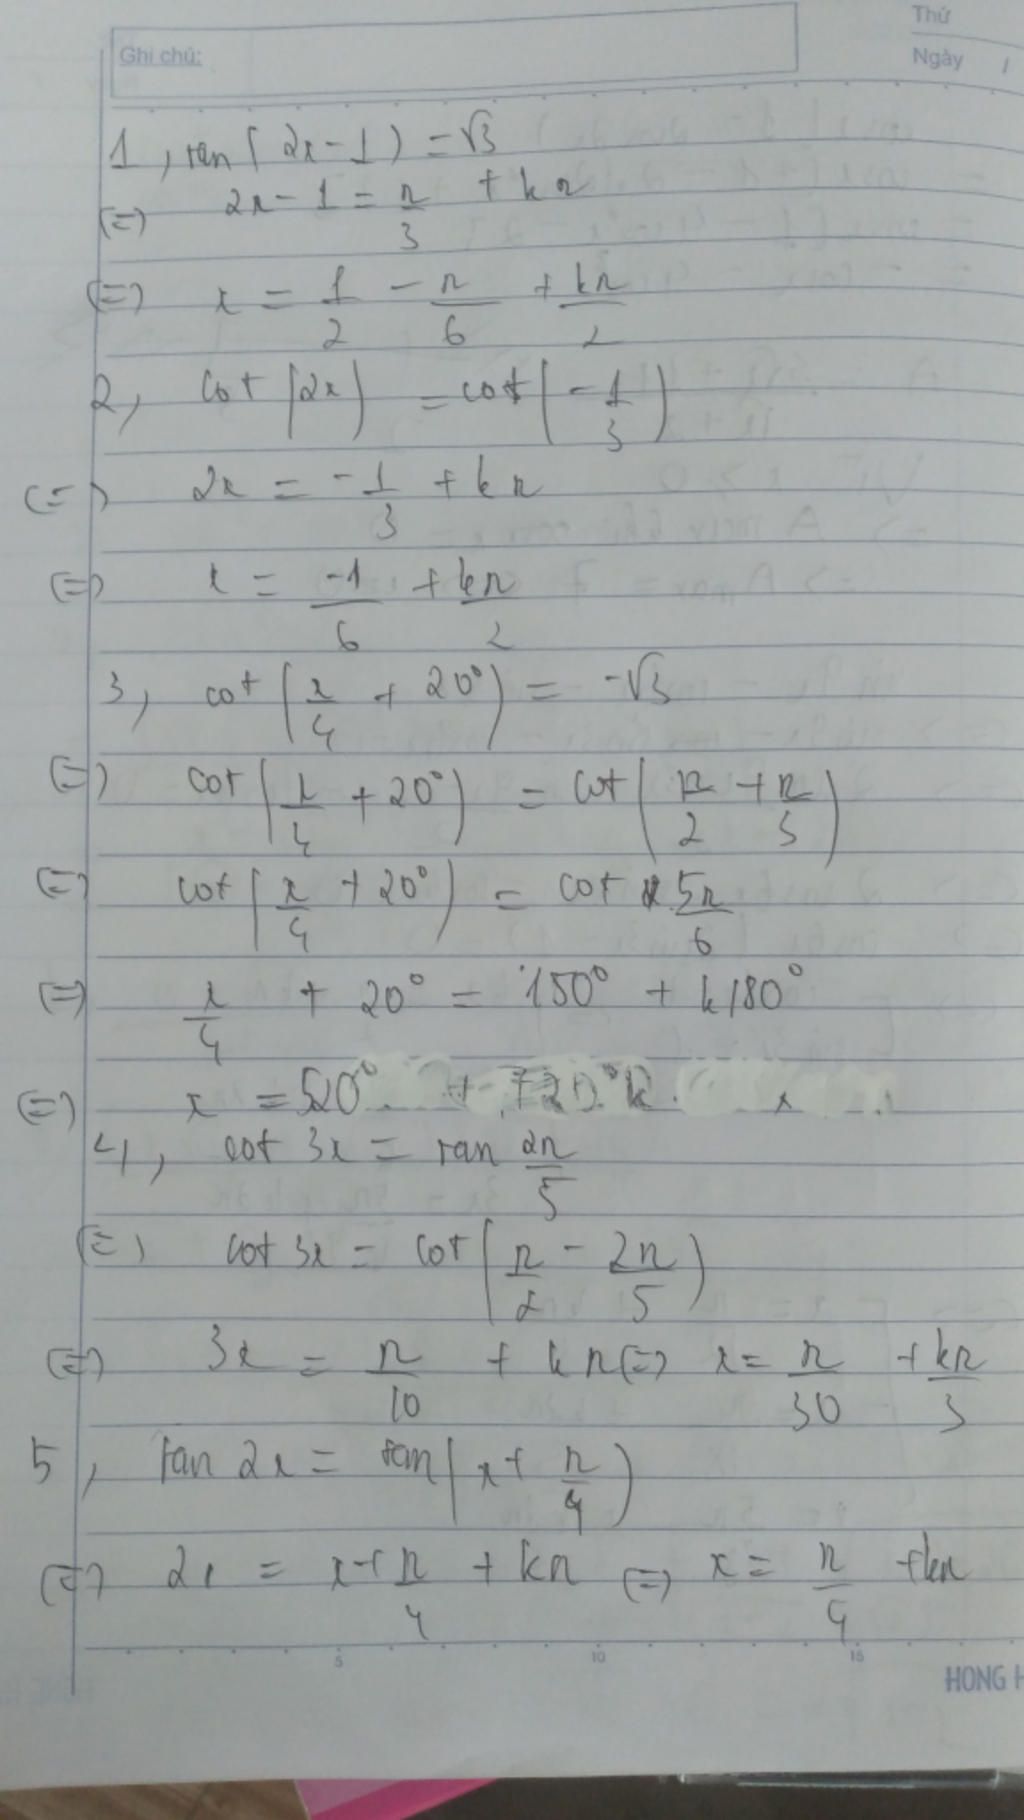 Thứ
Ghi chú:
Ngày /
1, tan(2x-1) = √3
(=) 2x-1 = π/3 + kπ
(=) x = 1/2 - π/6 + kπ/2
2, cot(2x) = cot(-1/3)
(=) 2x = -1/3 + kπ
(=) x = -1/6 + kπ/2
3, cot(x/4 + 20°) = -√3
(=) cot(x/4 + 20°) = cot(π/2 + π/3)
(=) cot(x/4 + 20°) = cot 5π/6
(=) x/4 + 20° = 150° + k180°
(=) x = 520° + 720°k
4, cot 3x = tan 2π/5
(=) cot 3x = cot(π/2 - 2π/5)
(=) 3x = π/10 + kπ (=) x = π/30 + kπ/3
5, tan 2x = tan(x + π/4)
(=) 2x = x + π/4 + kπ (=) x = π/4 + kπ
5 10 15
HONG H